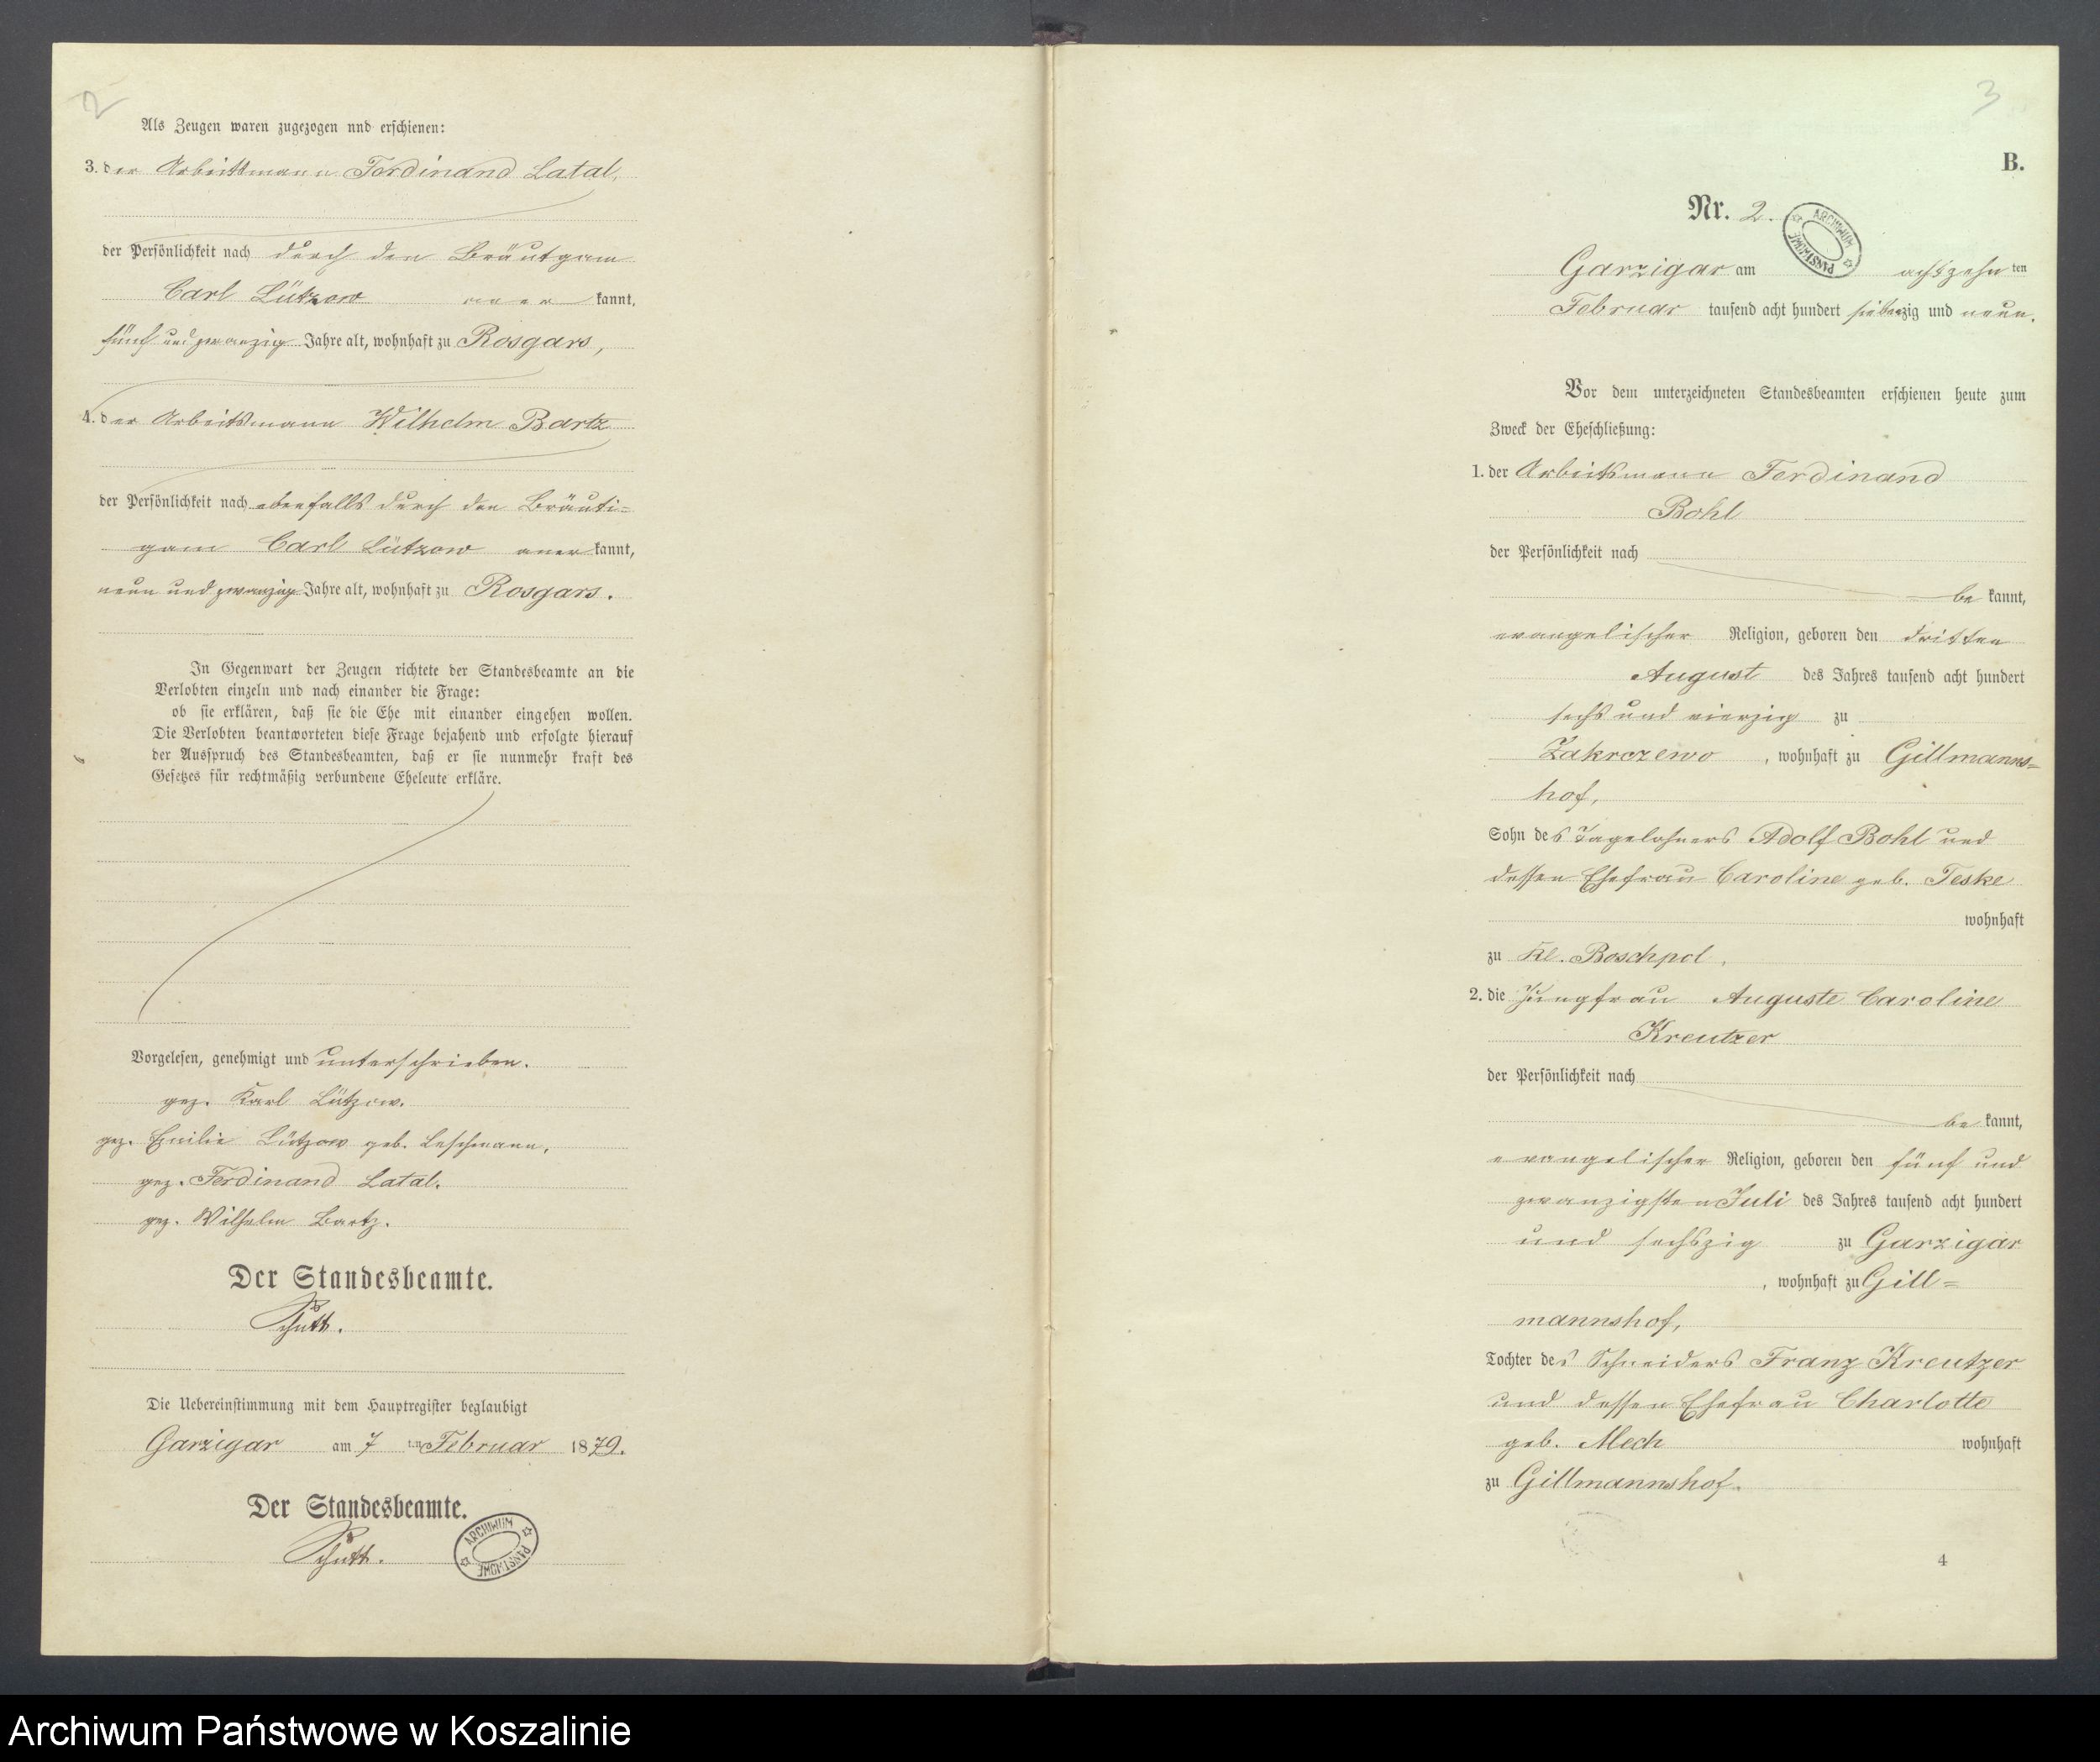 2
Als Zeugen waren zugezogen nnd erschienen:
3. der Arbeitsmann Ferdinand Latal,
der Persönlichkeit nach durch den Bräutgam
Carl Lützow aner kannt,
fünf und zwanzig Jahre alt, wohnhaft zu Rosgars,
4. der Arbeitsmann Wilhelm Bartz
der Persönlichkeit nach ebenfalls durch den Bräuti=
gam Carl Lützow aner kannt,
neun und zwanzig Jahre alt, wohnhaft zu Rosgars.
In Gegenwart der Zeugen richtete der Standesbeamte an die
Verlobten einzeln und nach einander die Frage:
ob sie erklären, daß sie die Ehe mit einander eingehen wollen.
Die Verlobten beantworteten diese Frage bejahend und erfolgte hierauf
der Ausspruch des Standesbeamten, daß er sie nunmehr kraft des
Gesetzes für rechtmäßig verbundene Eheleute erkläre.
Vorgelesen, genehmigt und unterschrieben.
gez. Karl Lützow.
gez. Emilie Lützow geb. Leschmann.
gez. Ferdinand Latal.
gez. Wilhelm Bartz.
Der Standesbeamte.
Schutt.
Die Uebereinstimmung mit dem Hauptregister beglaubigt
Garzigar am 7 ten Februar 1879.
Der Standesbeamte.
Schutt.
ARCHIWUM PAŃSTWOWE
3
B.
Nr. 2.
ARCHIWUM PAŃSTWOWE
Garzigar am achtzehn ten
Februar tausend acht hundert siebenzig und neun.
Vor dem unterzeichneten Standesbeamten erschienen heute zum
Zweck der Eheschließung:
1. der Arbeitsmann Ferdinand
Bohl
der Persönlichkeit nach
be kannt,
evangelischer Religion, geboren den dritten
August des Jahres tausend acht hundert
sechs und vierzig zu
Zakrczewo, wohnhaft zu Gillmanns=
hof,
Sohn des Tagelohners Adolf Bohl und
dessen Ehefrau Caroline geb. Teske
wohnhaft
zu Kl. Boschpol.
2. die Jungfrau Auguste Caroline
Kreutzer
der Persönlichkeit nach
be kannt,
evangelischer Religion, geboren den fünf und
zwanzigsten Juli des Jahres tausend acht hundert
und sechszig zu Garzigar
, wohnhaft zu Gill=
mannshof,
Tochter des Schneiders Franz Kreutzer
und dessen Ehefrau Charlotte
geb. Mech wohnhaft
zu Gillmannshof.
4
Archiwum Państwowe w Koszalinie